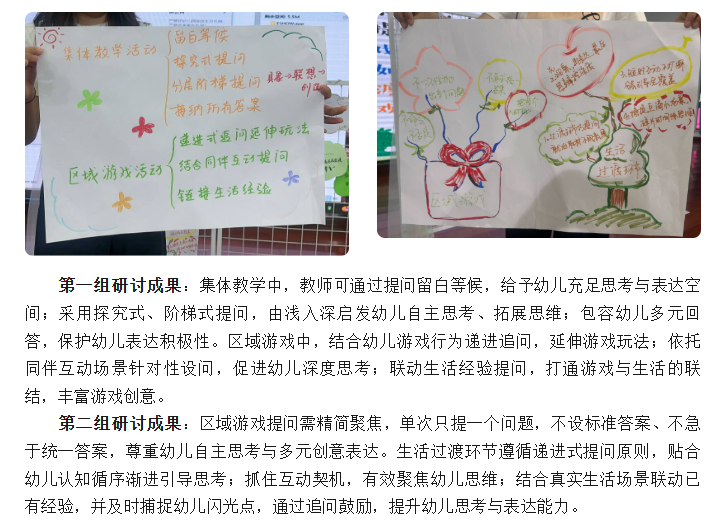 集体教学活动
留白等候
探究式提问
分层阶梯提问
具象→联想→创造
接纳所有答案
区域游戏活动
递进式追问延伸玩法
结合同伴互动提问
链接生活经验
区域游戏
生活
过渡环节
第一组研讨成果：集体教学中，教师可通过提问留白等候，给予幼儿充足思考与表达空
间；采用探究式、阶梯式提问，由浅入深启发幼儿自主思考、拓展思维；包容幼儿多元回
答，保护幼儿表达积极性。区域游戏中，结合幼儿游戏行为递进追问，延伸游戏玩法；依托
同伴互动场景针对性设问，促进幼儿深度思考；联动生活经验提问，打通游戏与生活的联
结，丰富游戏创意。
第二组研讨成果：区域游戏提问需精简聚焦，单次只提一个问题，不设标准答案、不急
于统一答案，尊重幼儿自主思考与多元创意表达。生活过渡环节遵循递进式提问原则，贴合
幼儿认知循序渐进引导思考；抓住互动契机，有效聚焦幼儿思维；结合真实生活场景联动已
有经验，并及时捕捉幼儿闪光点，通过追问鼓励，提升幼儿思考与表达能力。